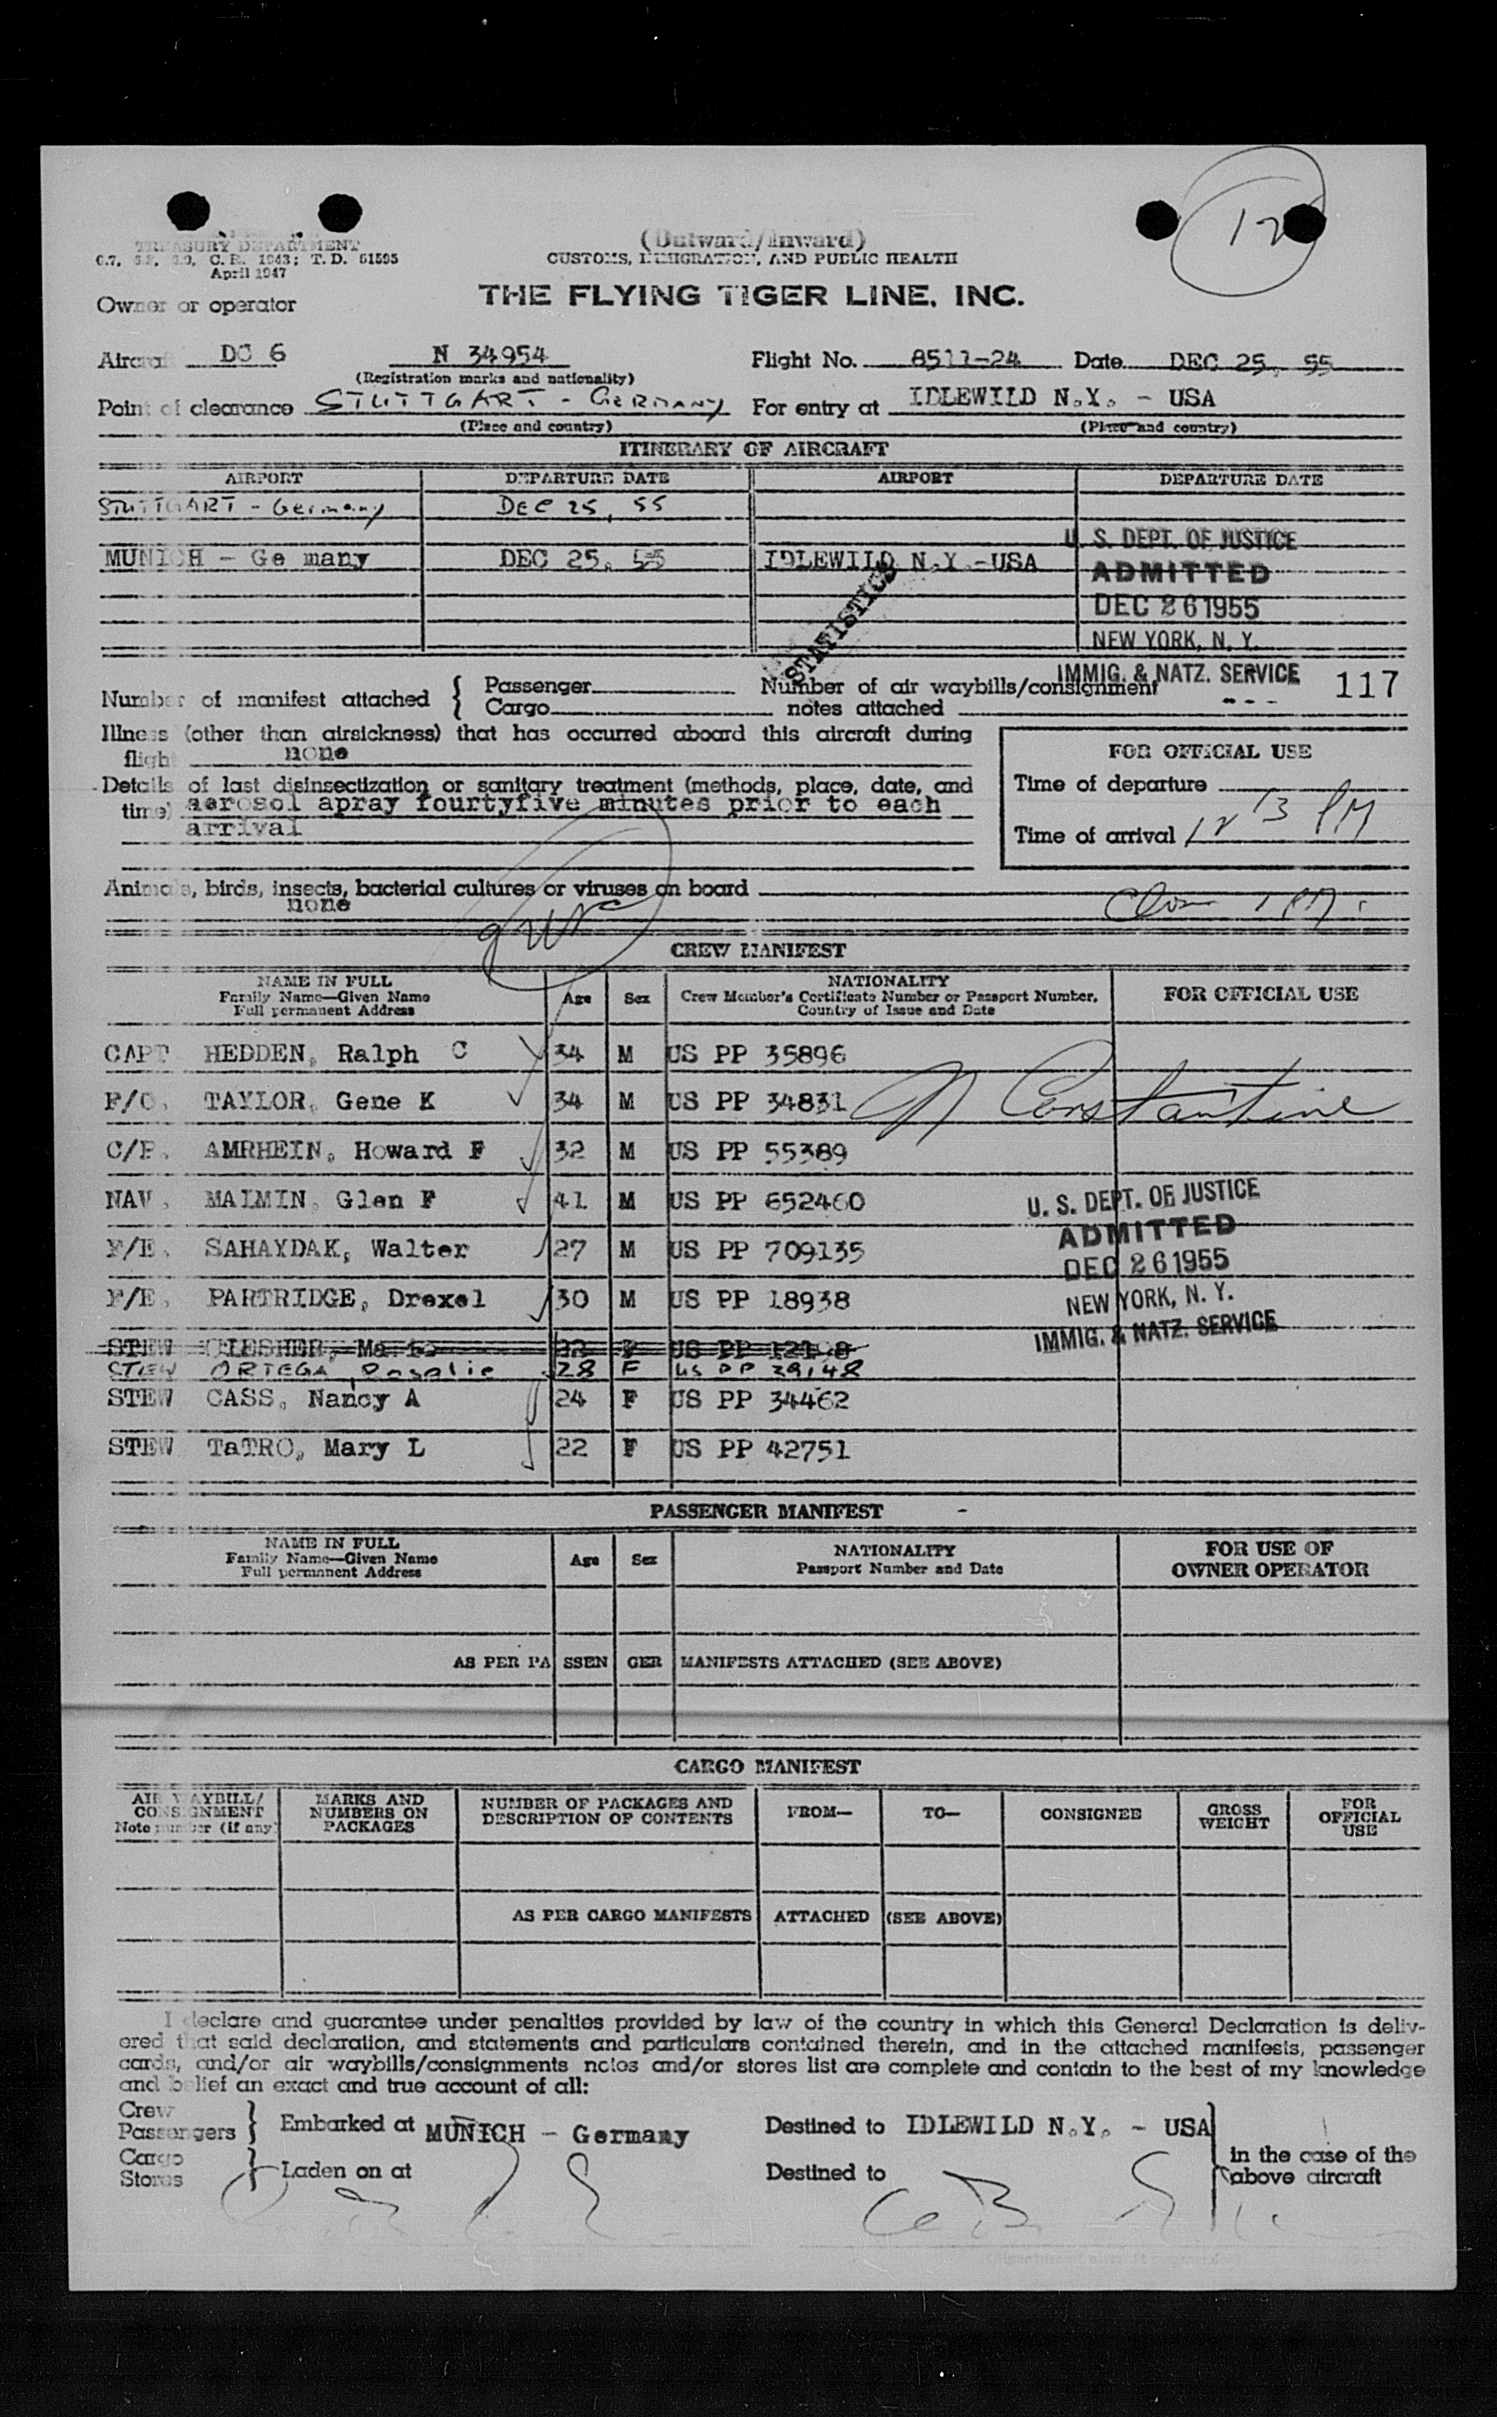 12
(Outward/Inward)
TREASURY DEPARTMENT
C. R. 1943; T. D. 51595
April 1947
CUSTOMS, IMMIGRATION, AND PUBLIC HEALTH
THE FLYING TIGER LINE, INC.
Owner or operator
Aircraft DC 6 N 34954 Flight No. 8511-24 Date DEC 25, 55
(Registration marks and nationality)
Point of clearance STUTTGART - GERMANY For entry at IDLEWILD N.Y. - USA
(Place and country) (Place and country)
ITINERARY OF AIRCRAFT
AIRPORT DEPARTURE DATE AIRPORT DEPARTURE DATE
STUTTGART - Germany DEC 25, 55
U. S. DEPT. OF JUSTICE
MUNICH - Ge many DEC 25, 55 IDLEWILD N.Y.-USA
ADMITTED
DEC 26 1955
NEW YORK, N. Y.
IMMIG. & NATZ. SERVICE
STATISTICS
117
Number of manifest attached { Passenger Number of air waybills/consignment
Cargo notes attached - - -
Illness (other than airsickness) that has occurred aboard this aircraft during
flight none
FOR OFFICIAL USE
Details of last disinsectization or sanitary treatment (methods, place, date, and
time) aerosol apray fourtyfive minutes prior to each
arrival
Time of departure
Time of arrival 12 13 PM
Animals, birds, insects, bacterial cultures or viruses on board
none
CREW MANIFEST
NAME IN FULL
Family Name—Given Name
Full permanent Address
Age Sex
NATIONALITY
Crew Member's Certificate Number or Passport Number,
Country of Issue and Date
FOR OFFICIAL USE
CAPT HEDDEN, Ralph C 34 M US PP 35896
F/O. TAYLOR, Gene K 34 M US PP 34831
N Constantine
C/P. AMRHEIN, Howard F 32 M US PP 55389
NAV. MAIMIN, Glen F 41 M US PP 652460
F/E. SAHAYDAK, Walter 27 M US PP 709135
F/E. PARTRIDGE, Drexel 30 M US PP 18938
U. S. DEPT. OF JUSTICE
ADMITTED
DEC 26 1955
NEW YORK, N. Y.
IMMIG. & NATZ. SERVICE
STEW 22 F US PP
STEW ORTEGA, Rosalie 28 F US PP 39148
STEW CASS, Nancy A 24 F US PP 34462
STEW TaTRO, Mary L 22 F US PP 42751
PASSENGER MANIFEST
NAME IN FULL
Family Name—Given Name
Full permanent Address
Age Sex
NATIONALITY
Passport Number and Date
FOR USE OF
OWNER OPERATOR
AS PER PA SSEN GER MANIFESTS ATTACHED (SEE ABOVE)
CARGO MANIFEST
AIR WAYBILL/
CONSIGNMENT
Note number (if any)
MARKS AND
NUMBERS ON
PACKAGES
NUMBER OF PACKAGES AND
DESCRIPTION OF CONTENTS
FROM— TO— CONSIGNEE
GROSS
WEIGHT
FOR
OFFICIAL
USE
AS PER CARGO MANIFESTS ATTACHED (SEE ABOVE)
I declare and guarantee under penalties provided by law of the country in which this General Declaration is deliv-
ered that said declaration, and statements and particulars contained therein, and in the attached manifests, passenger
cards, and/or air waybills/consignments notes and/or stores list are complete and contain to the best of my knowledge
and belief an exact and true account of all:
Crew
Passengers } Embarked at MUNICH - Germany Destined to IDLEWILD N.Y. - USA
Cargo
Stores } Laden on at Destined to
in the case of the
above aircraft